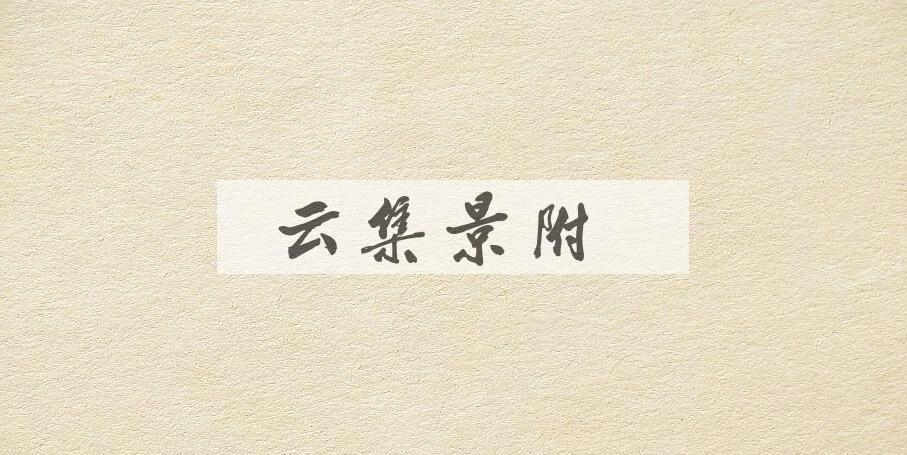 云集景附